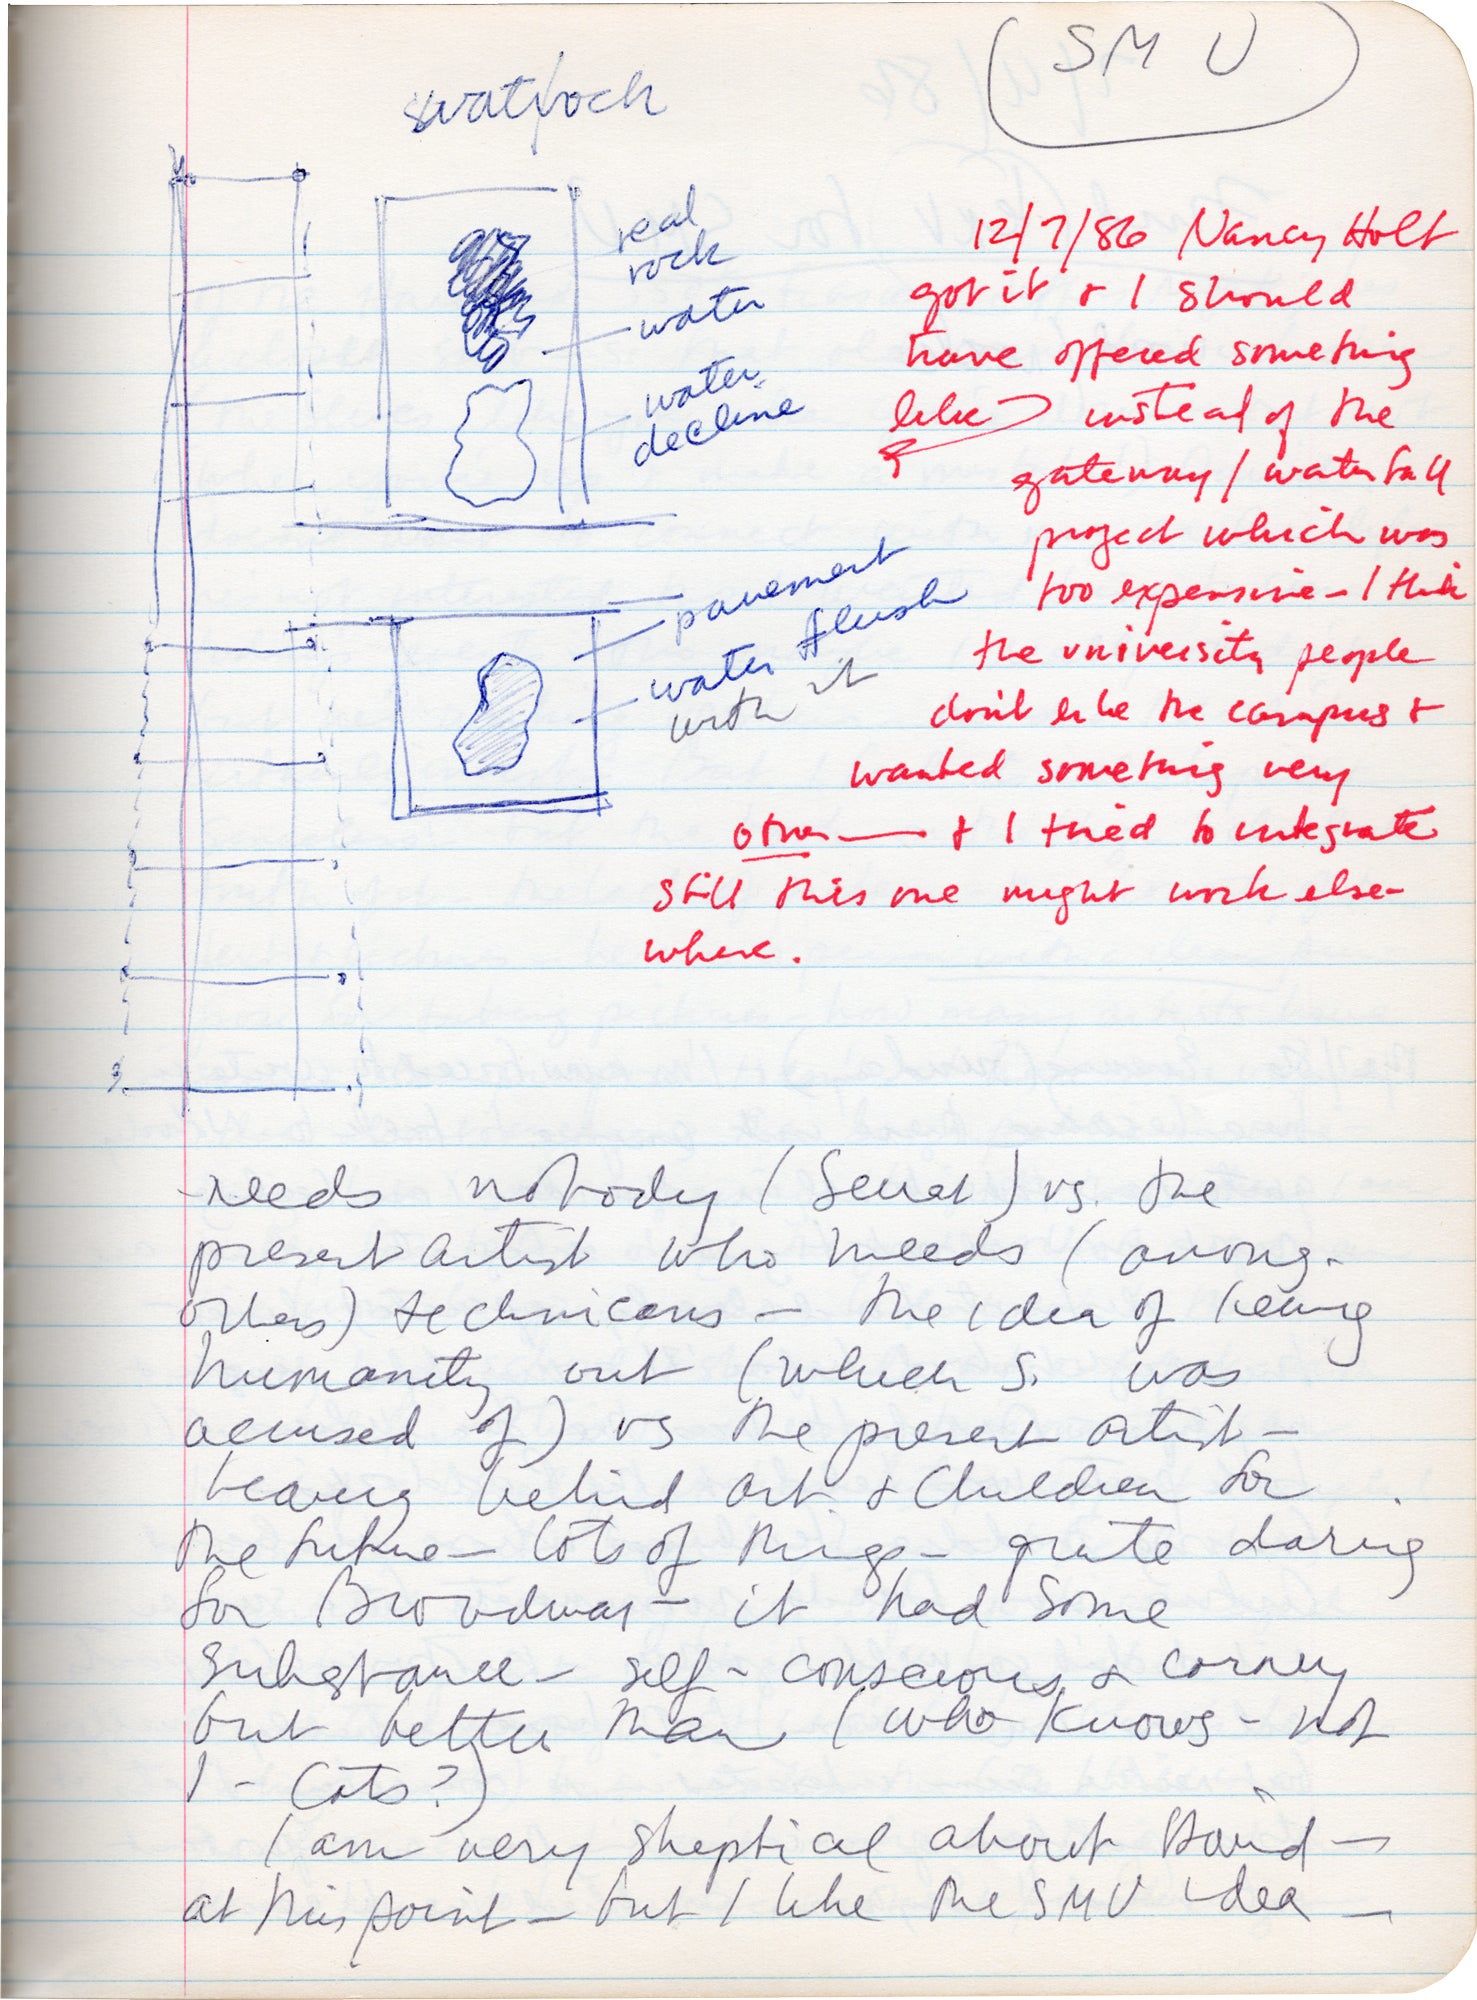 (SMU)
real
rock
water
water
decline
pavement
water flush
with it
12/7/86 Nancy Holt
got it & I should
have offered something
like instead of the
gateway / waterfall
project which was
too expensive - I think
the university people
don't like the campus &
wanted something very
other — & I tried to integrate
still this one might work else-
where.
-needs nobody (Seurat) vs. the
present artist who needs (among-
others) technicians - the idea of leaving
humanity out (which S. was
accused of) vs the present artist -
leaving behind art & Children for
the future - lots of things - quite daring
for Broadway - it had some
substance - self-conscious & corney
but better than (who knows - not
I - Cats?)
I am very skeptical about David -
at this point - but I like the SMU idea -